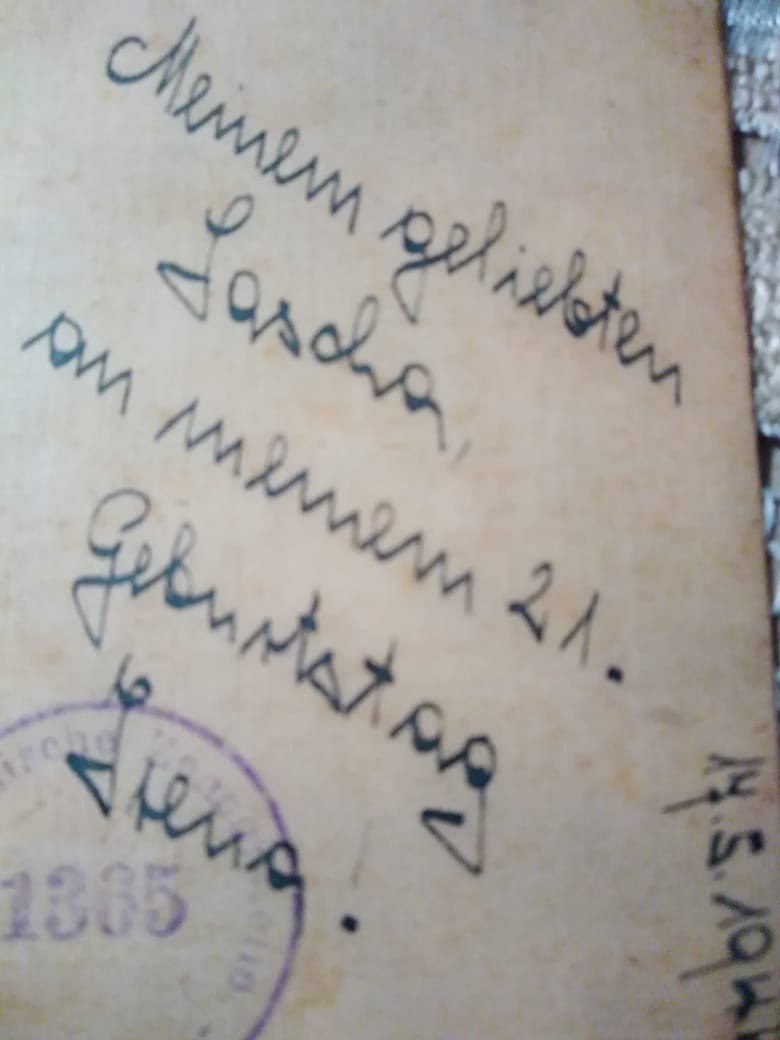 Meinem geliebten
Sascha,
an meinem 21.
Geburtstag
Irena.
1365